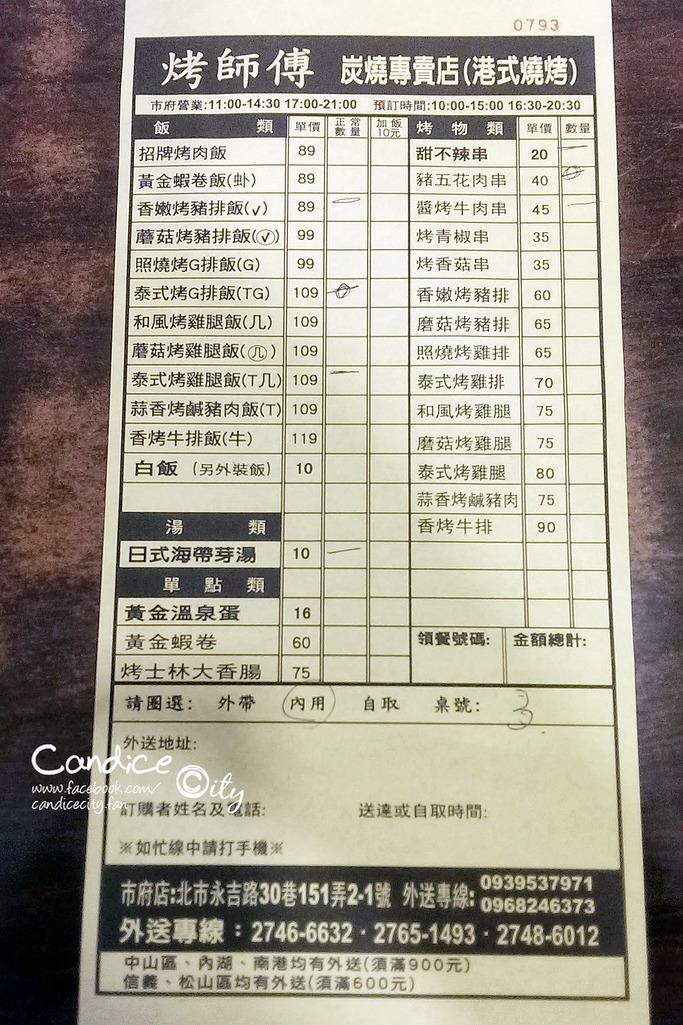 0793
烤師傅 炭燒專賣店(港式燒烤)
市府營業:11:00-14:30 17:00-21:00 預訂時間:10:00-15:00 16:30-20:30
飯 類 單價 正常數量 加飯10元 烤物類 單價 數量
招牌烤肉飯 89 甜不辣串 20 一
黃金蝦卷飯(卦) 89 豬五花肉串 40
香嫩烤豬排飯(√) 89 一 醬烤牛肉串 45 一
蘑菇烤豬排飯(√) 99 烤青椒串 35
照燒烤G排飯(G) 99 烤香菇串 35
泰式烤G排飯(TG) 109 香嫩烤豬排 60
和風烤雞腿飯(几) 109 磨菇烤豬排 65
蘑菇烤雞腿飯(几) 109 照燒烤雞排 65
泰式烤雞腿飯(T几) 109 一 泰式烤雞排 70
蒜香烤鹹豬肉飯(T) 109 和風烤雞腿 75
香烤牛排飯(牛) 119 磨菇烤雞腿 75
白飯 (另外裝飯) 10 泰式烤雞腿 80
蒜香烤鹹豬肉 75
湯 類 香烤牛排 90
日式海帶芽湯 10 一
單點類
黃金溫泉蛋 16
黃金蝦卷 60 領餐號碼: 金額總計:
烤士林大香腸 75
請圈選: 外帶 內用 自取 桌號: 3
外送地址:
Candice City
www.facebook.com/
candicecity.fan
訂購者姓名及電話: 送達或自取時間:
※如忙線中請打手機※
市府店:北市永吉路30巷151弄2-1號 外送專線: 0939537971
0968246373
外送專線：2746-6632·2765-1493·2748-6012
中山區、內湖、南港均有外送(須滿900元)
信義、松山區均有外送(須滿600元)